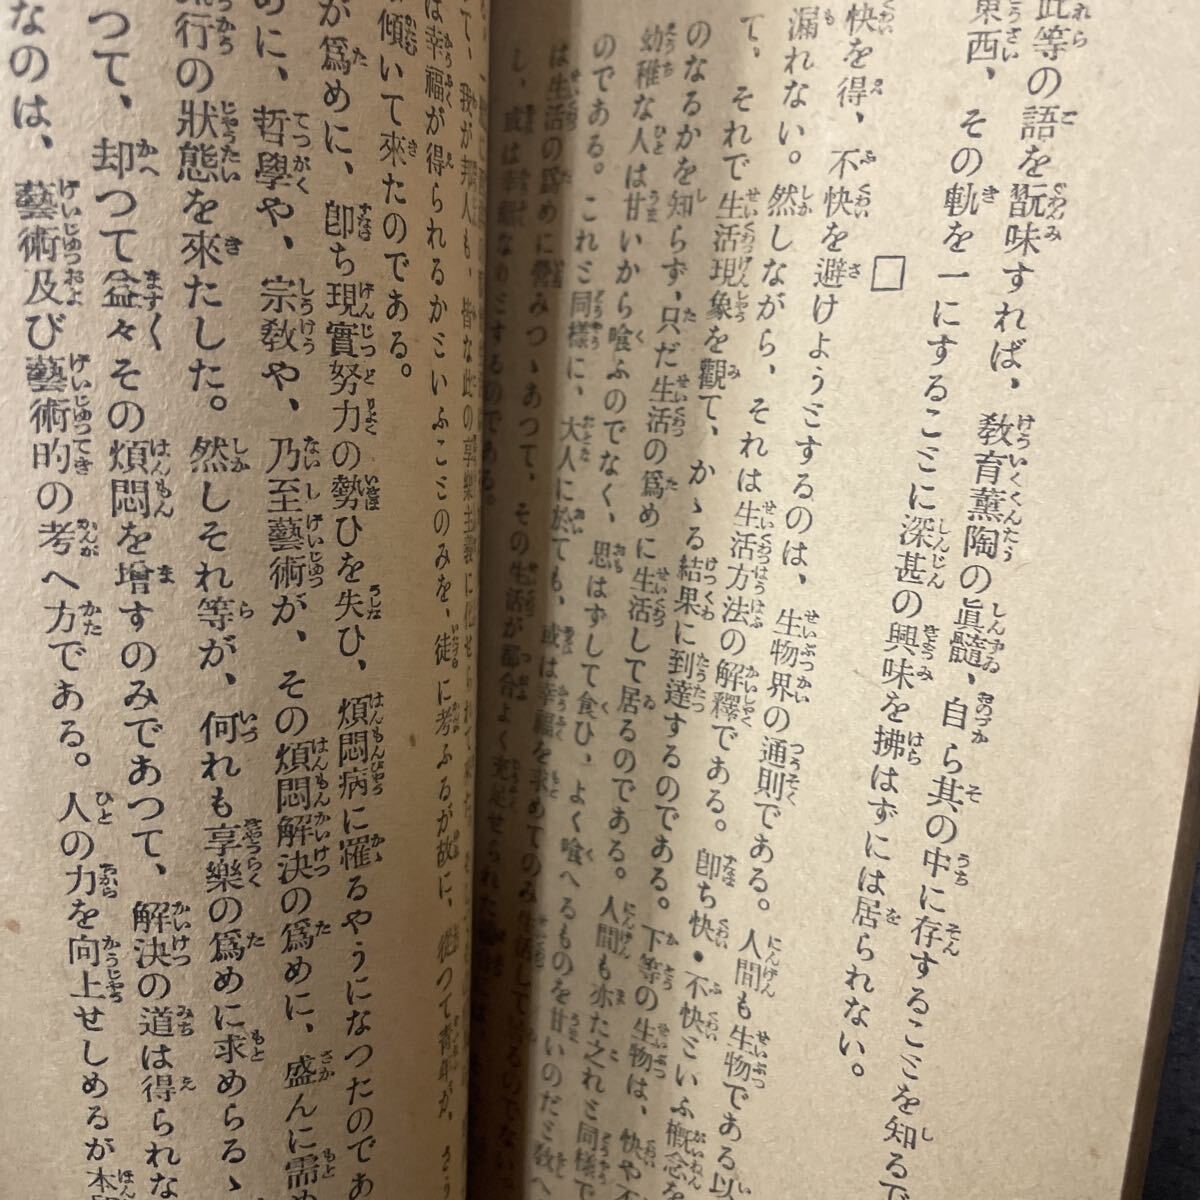 此等の語を翫味すれば、教育薰陶の眞髓、自ら其の中に存することを知るで
東西、その軌を一にすることに深甚の興味を拂はずには居られない。
□
快を得、不快を避けようとするのは、生物界の通則である。人間も生物である以
漏れない。然しながら、それは生活方法の解釋である。卽ち快・不快といふ概念を
て、それで生活現象を觀て、かゝる結果に到達するのである。下等の生物は、快や不
のなるかを知らず、只だ生活の爲めに生活して居るのである。人間も亦た之れと同樣で
幼稚な人は甘いから喰ふのでなく、思はずして食ひ、よく喰へるものを甘いのだと敎へ
のである。これと同樣に、大人に於ても、或は幸福を求めてのみ生活して居るのでない
は生活の爲めに營みつゝあつて、その生活が都合よく充足せられた
し、或は なりとするのである。
て、我が邦人も、皆な此の享樂主義に化せられて
は幸福が得られるかといふことのみを、徒に考ふるが故に、從つて靑年が、さう
傾いて來たのである。
が爲めに、卽ち現實努力の勢ひを失ひ、煩悶病に罹るやうになつたのであ
めに、哲學や、宗敎や、乃至藝術が、その煩悶解決の爲めに、盛んに需め
行の狀態を來たした。然しそれ等が、何れも享樂の爲めに求めらるゝ
つて、却つて益々その煩悶を增すのみであつて、解決の道は得られな
なのは、藝術及び藝術的の考へ方である。人の力を向上せしめるが本